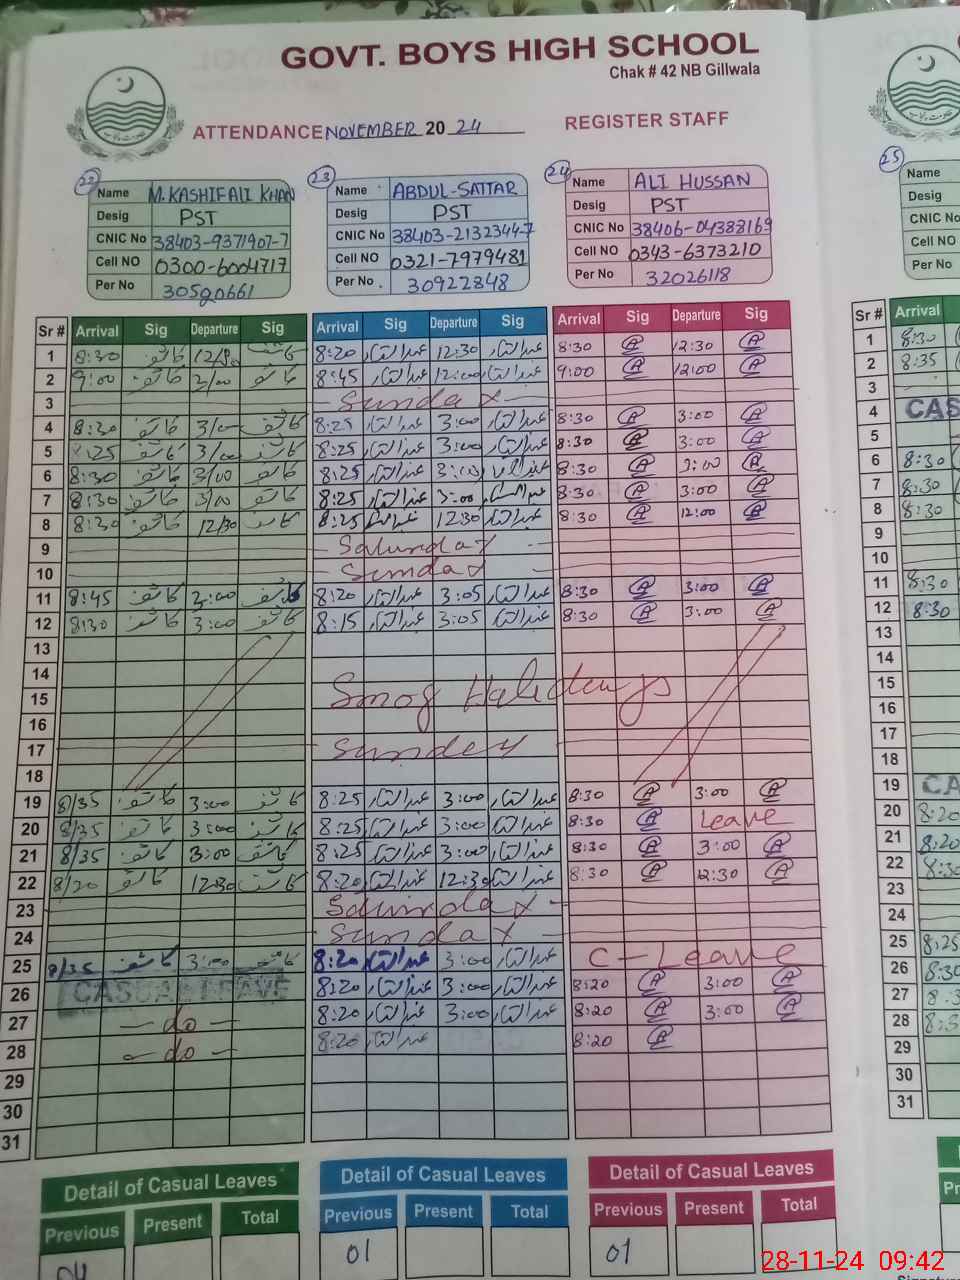 GOVT. BOYS HIGH SCHOOL
Chak # 42 NB Gillwala
ATTENDANCE NOVEMBER 20 24 REGISTER STAFF
22 23 24 25
Name M.KASHIF ALI KHAN Name ABDUL-SATTAR Name ALI HUSSAN Name
Desig PST Desig PST Desig PST Desig
CNIC No 38403-9371907-7 CNIC No 38403-2132344-7 CNIC No 38406-04388169 CNIC No
Cell NO 0300-6004717 Cell NO 0321-7979481 Cell NO 0343-6373210 Cell NO
Per No 30520661 Per No. 30922848 Per No 32026118 Per No
Sr # Arrival Sig Departure Sig Arrival Sig Departure Sig Arrival Sig Departure Sig Sr # Arrival
1 8:30 کاشف 12/30 کاشف 8:20 عبدالستار 12:30 عبدالستار 8:30 A 12:30 A 1 8:30
2 9:00 کاشف کاشف 8:45 عبدالستار 12:00 عبدالستار 9:00 A 12:00 A 2 8:35
3 Sunday 3
4 8:30 کاشف 3/00 کاشف 8:25 عبدالستار 3:00 عبدالستار 8:30 A 3:00 A 4 CAS
5 8:25 کاشف 3/00 کاشف 8:25 عبدالستار 3:00 عبدالستار 8:30 A 3:00 A 5
6 8:30 کاشف 3/00 کاشف 8:25 عبدالستار 3:00 عبدالستار 8:30 A 3:00 A 6 8:30
7 8:30 کاشف 3/00 کاشف 8:25 عبدالستار 3:00 عبدالستار 8:30 A 3:00 A 7 8:30
8 8:30 کاشف 12/30 کاشف 8:25 عبدالستار 12:30 عبدالستار 8:30 A 12:00 A 8 8:30
9 Saturday 9
10 Sunday 10
11 8:45 کاشف 3:00 کاشف 8:20 عبدالستار 3:05 عبدالستار 8:30 A 3:00 A 11 8:30
12 8:30 کاشف 3:00 کاشف 8:15 عبدالستار 3:05 عبدالستار 8:30 A 3:00 A 12 8:30
13 13
14 14
15 Smog Holidays 15
16 16
17 Sunday 17
18 18
19 8/35 کاشف 3:00 کاشف 8:25 عبدالستار 3:00 عبدالستار 8:30 A 3:00 A 19 CA
20 8/35 کاشف 3:00 کاشف 8:25 عبدالستار 3:00 عبدالستار 8:30 A Leave 20 8:20
21 8/35 کاشف 3:00 کاشف 8:25 عبدالستار 3:00 عبدالستار 8:30 A 3:00 A 21 8:20
22 8/20 کاشف 12:30 کاشف 8:20 عبدالستار 12:30 عبدالستار 8:30 A 12:30 A 22 8:30
23 Saturday 23
24 Sunday 24
25 8/35 کاشف 3:00 کاشف 8:20 عبدالستار 3:00 عبدالستار C-Leave 25 8:25
26 CASUAL LEAVE 8:20 عبدالستار 3:00 عبدالستار 8:20 A 3:00 A 26 8:30
27 - do - 8:20 عبدالستار 3:00 عبدالستار 8:20 A 3:00 A 27
28 - do - 8:20 عبدالستار 8:20 A 28
29 29
30 30
31 31
Detail of Casual Leaves Detail of Casual Leaves Detail of Casual Leaves
Previous Present Total Previous Present Total Previous Present Total
01 01
28-11-24 09:42